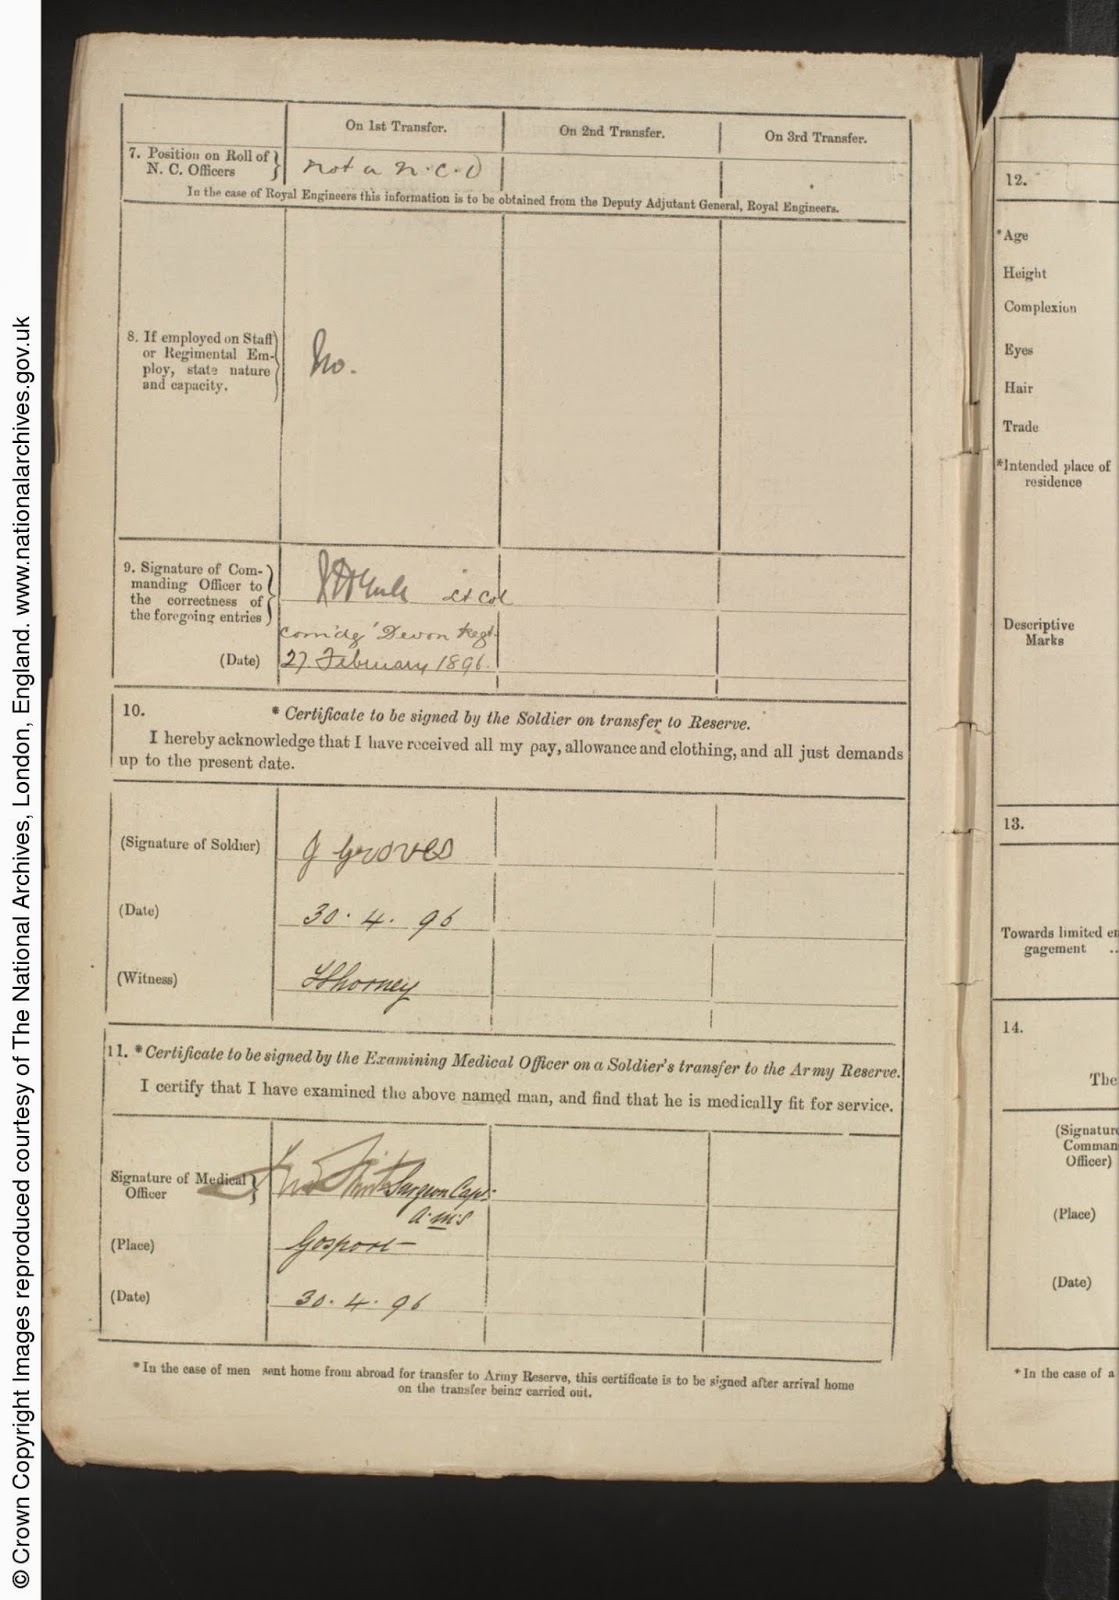 On 1st Transfer. On 2nd Transfer. On 3rd Transfer.
7. Position on Roll of
N. C. Officers
not a N.C.O
In the case of Royal Engineers this information is to be obtained from the Deputy Adjutant General, Royal Engineers.
8. If employed on Staff
or Regimental Em-
ploy, state nature
and capacity.
No.
9. Signature of Com-
manding Officer to
the correctness of
the foregoing entries
Lt Col
com'dg' Devon Regt.
(Date) 27 February 1896.
10. * Certificate to be signed by the Soldier on transfer to Reserve.
I hereby acknowledge that I have received all my pay, allowance and clothing, and all just demands
up to the present date.
(Signature of Soldier) J Groves
(Date) 30.4.96
(Witness)
11. * Certificate to be signed by the Examining Medical Officer on a Soldier's transfer to the Army Reserve.
I certify that I have examined the above named man, and find that he is medically fit for service.
Signature of Medical
Officer
Surgeon Capt.
A.M.S
(Place) Gosport
(Date) 30.4.96
* In the case of men sent home from abroad for transfer to Army Reserve, this certificate is to be signed after arrival home
on the transfer being carried out.
12.
*Age
Height
Complexion
Eyes
Hair
Trade
*Intended place of
residence
Descriptive
Marks
13.
Towards limited en
gagement ..
14.
The
(Signature
Comman
Officer)
(Place)
(Date)
* In the case of a
© Crown Copyright Images reproduced courtesy of The National Archives, London, England. www.nationalarchives.gov.uk